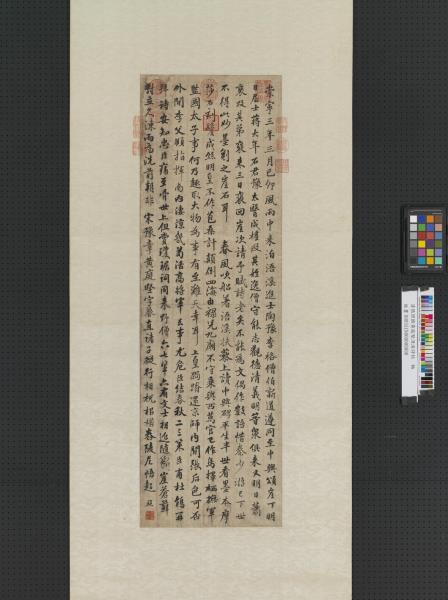 崇寧三年三月己卯風雨中來泊浯溪進士陶豫李格僧伯新道遵同至中興頌崖下明
日居士蔣大年石君豫太醫成權及其姪逸僧守能志觀德清義明等眾俱來又明日蕭
褒及其弟褎來三日裴回崖次請予賦詩老夫不能為文偶作數語惜秦少游已下世
不得此妙墨劖之崖石耳 春風吹船著浯溪扶藜上讀中興碑平生半世看墨本摩
莎石刻鬢成絲明皇不作苞桑計顛倒四海由祿兒九廟不守乘輿西萬官已作烏擇栖撫軍
監國太子事何乃趣取大物為事有至難天幸耳上皇跼蹐還京師內間張后色可否
外間李父頤指揮南內淒涼幾苟活高將軍去事尤危臣結舂秋二三策臣甫杜鵑再
拜詩安知忠臣痛至骨世上但賞瓊琚詞同來野僧六七輩亦有文士相追隨斷崖蒼蘚
對立久涷雨為洗前朝悲 宋豫章黃庭堅字魯直諸子從行相梲相楛舂陵尼悟超